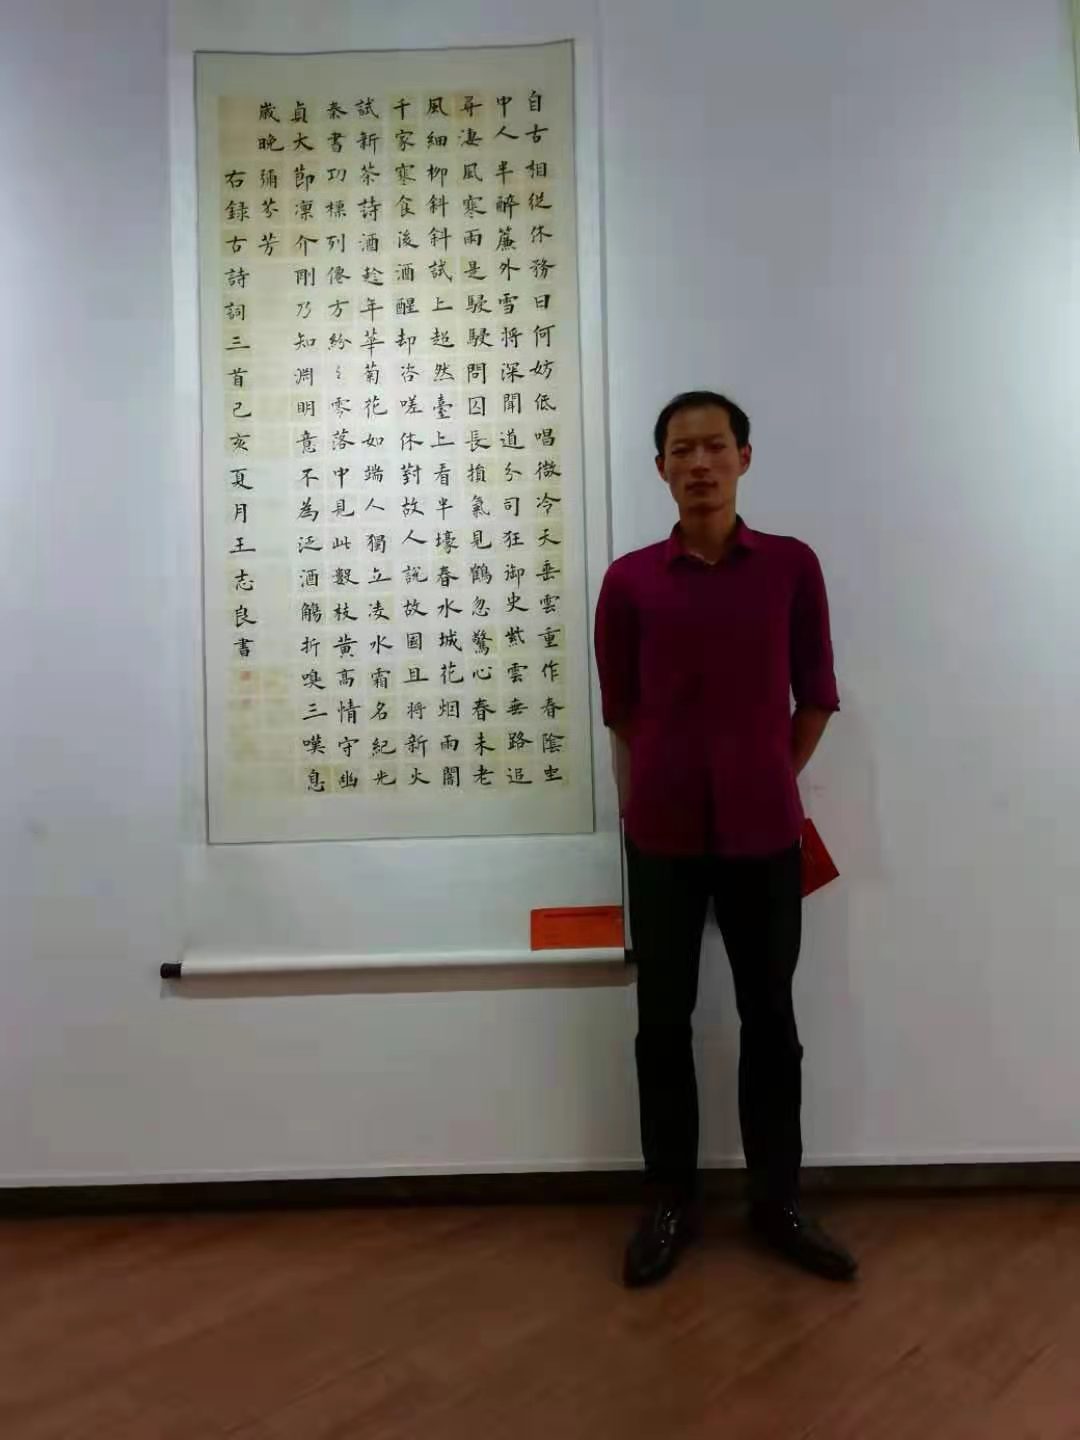 自古相從休務日何妨低唱微冷天垂雲重作春陰坐
中人半醉簾外雪將深聞道分司狂御史紫雲無路追
尋淒風寒雨是駸駸問囚長損氣見鶴忽驚心春未老
風細柳斜斜試上超然臺上看半壕春水城花烟雨闇
千家寒食後酒醒却咨嗟休對故人說故国且將新火
試新茶詩酒趁年華菊花如端人獨立凌水霜名紀先
秦書功標列僊方紛〻零落中見此數枝黄高情守幽
貞大節凛介剛乃知淵明意不為泛酒觴折嗅三嘆息
歲晚彌芬芳
右録古詩詞三首己亥夏月王志良書